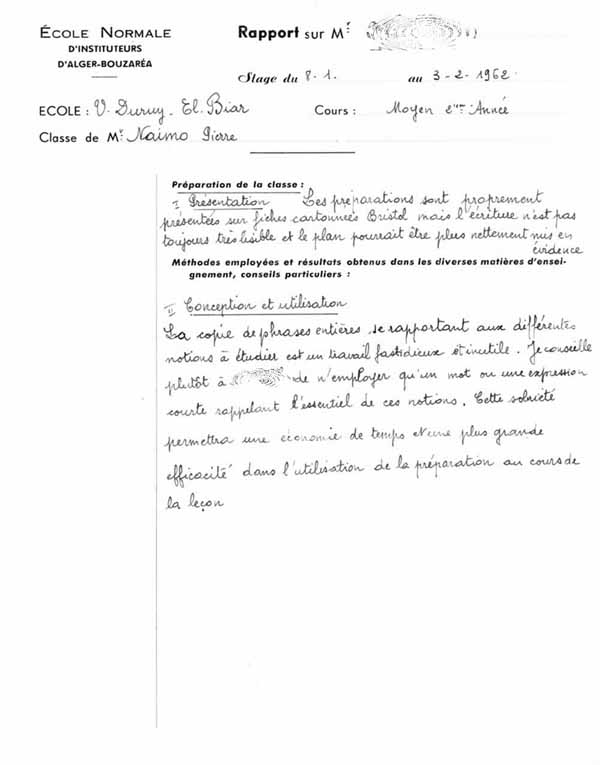 ÉCOLE NORMALE
D'INSTITUTEURS
D'ALGER-BOUZARÉA
Rapport sur Mʳ
Stage du 8-1. au 3-2-1962.
ECOLE : V. Duruy. El. Biar
Cours : Moyen 2ᵐᵉ Année
Classe de Mʳ Naimo Pierre
Préparation de la classe :
I Présentation Les préparations sont proprement
présentées sur fiches cartonnées Bristol mais l'écriture n'est pas
toujours très lisible et le plan pourrait être plus nettement mis en
évidence
Méthodes employées et résultats obtenus dans les diverses matières d'ensei-
gnement, conseils particuliers :
II Conception et utilisation
La copie de phrases entières se rapportant aux différentes
notions à étudier est un travail fastidieux et inutile. Je conseille
plutôt à de n'employer qu'un mot ou une expression
courte rappelant l'essentiel de ces notions. Cette sobriété
permettra une économie de temps et une plus grande
efficacité dans l'utilisation de la préparation au cours de
la leçon